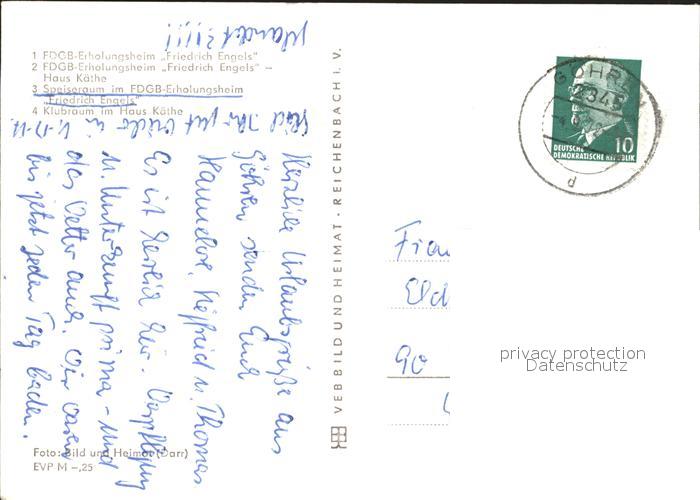 1 FDGB-Erholungsheim „Friedrich Engels"
2 FDGB-Erholungsheim „Friedrich Engels" –
Haus Käthe
3 Speiseraum im FDGB-Erholungsheim
„Friedrich Engels"
4 Klubraum im Haus Käthe
Herzliche Urlaubsgrüße aus
Göhren senden Euch
Hannelore, Siegfried u. Thomas
Es ist herrlich hier. Verpflegung
u. Unterkunft prima - und
das Wetter auch. Wir waren
bis jetzt jeden Tag baden.
Seid Ihr gut wieder in
Foto: Bild und Heimat (Darr)
EVP M –,25
VEB BILD UND HEIMAT · REICHENBACH I. V.
GÖHREN
2345
DEUTSCHE
DEMOKRATISCHE REPUBLIK
10
d
90
privacy protection
Datenschutz